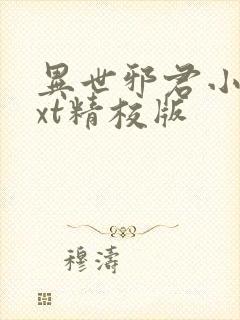 異世邪君小
xt精校版
穆濤